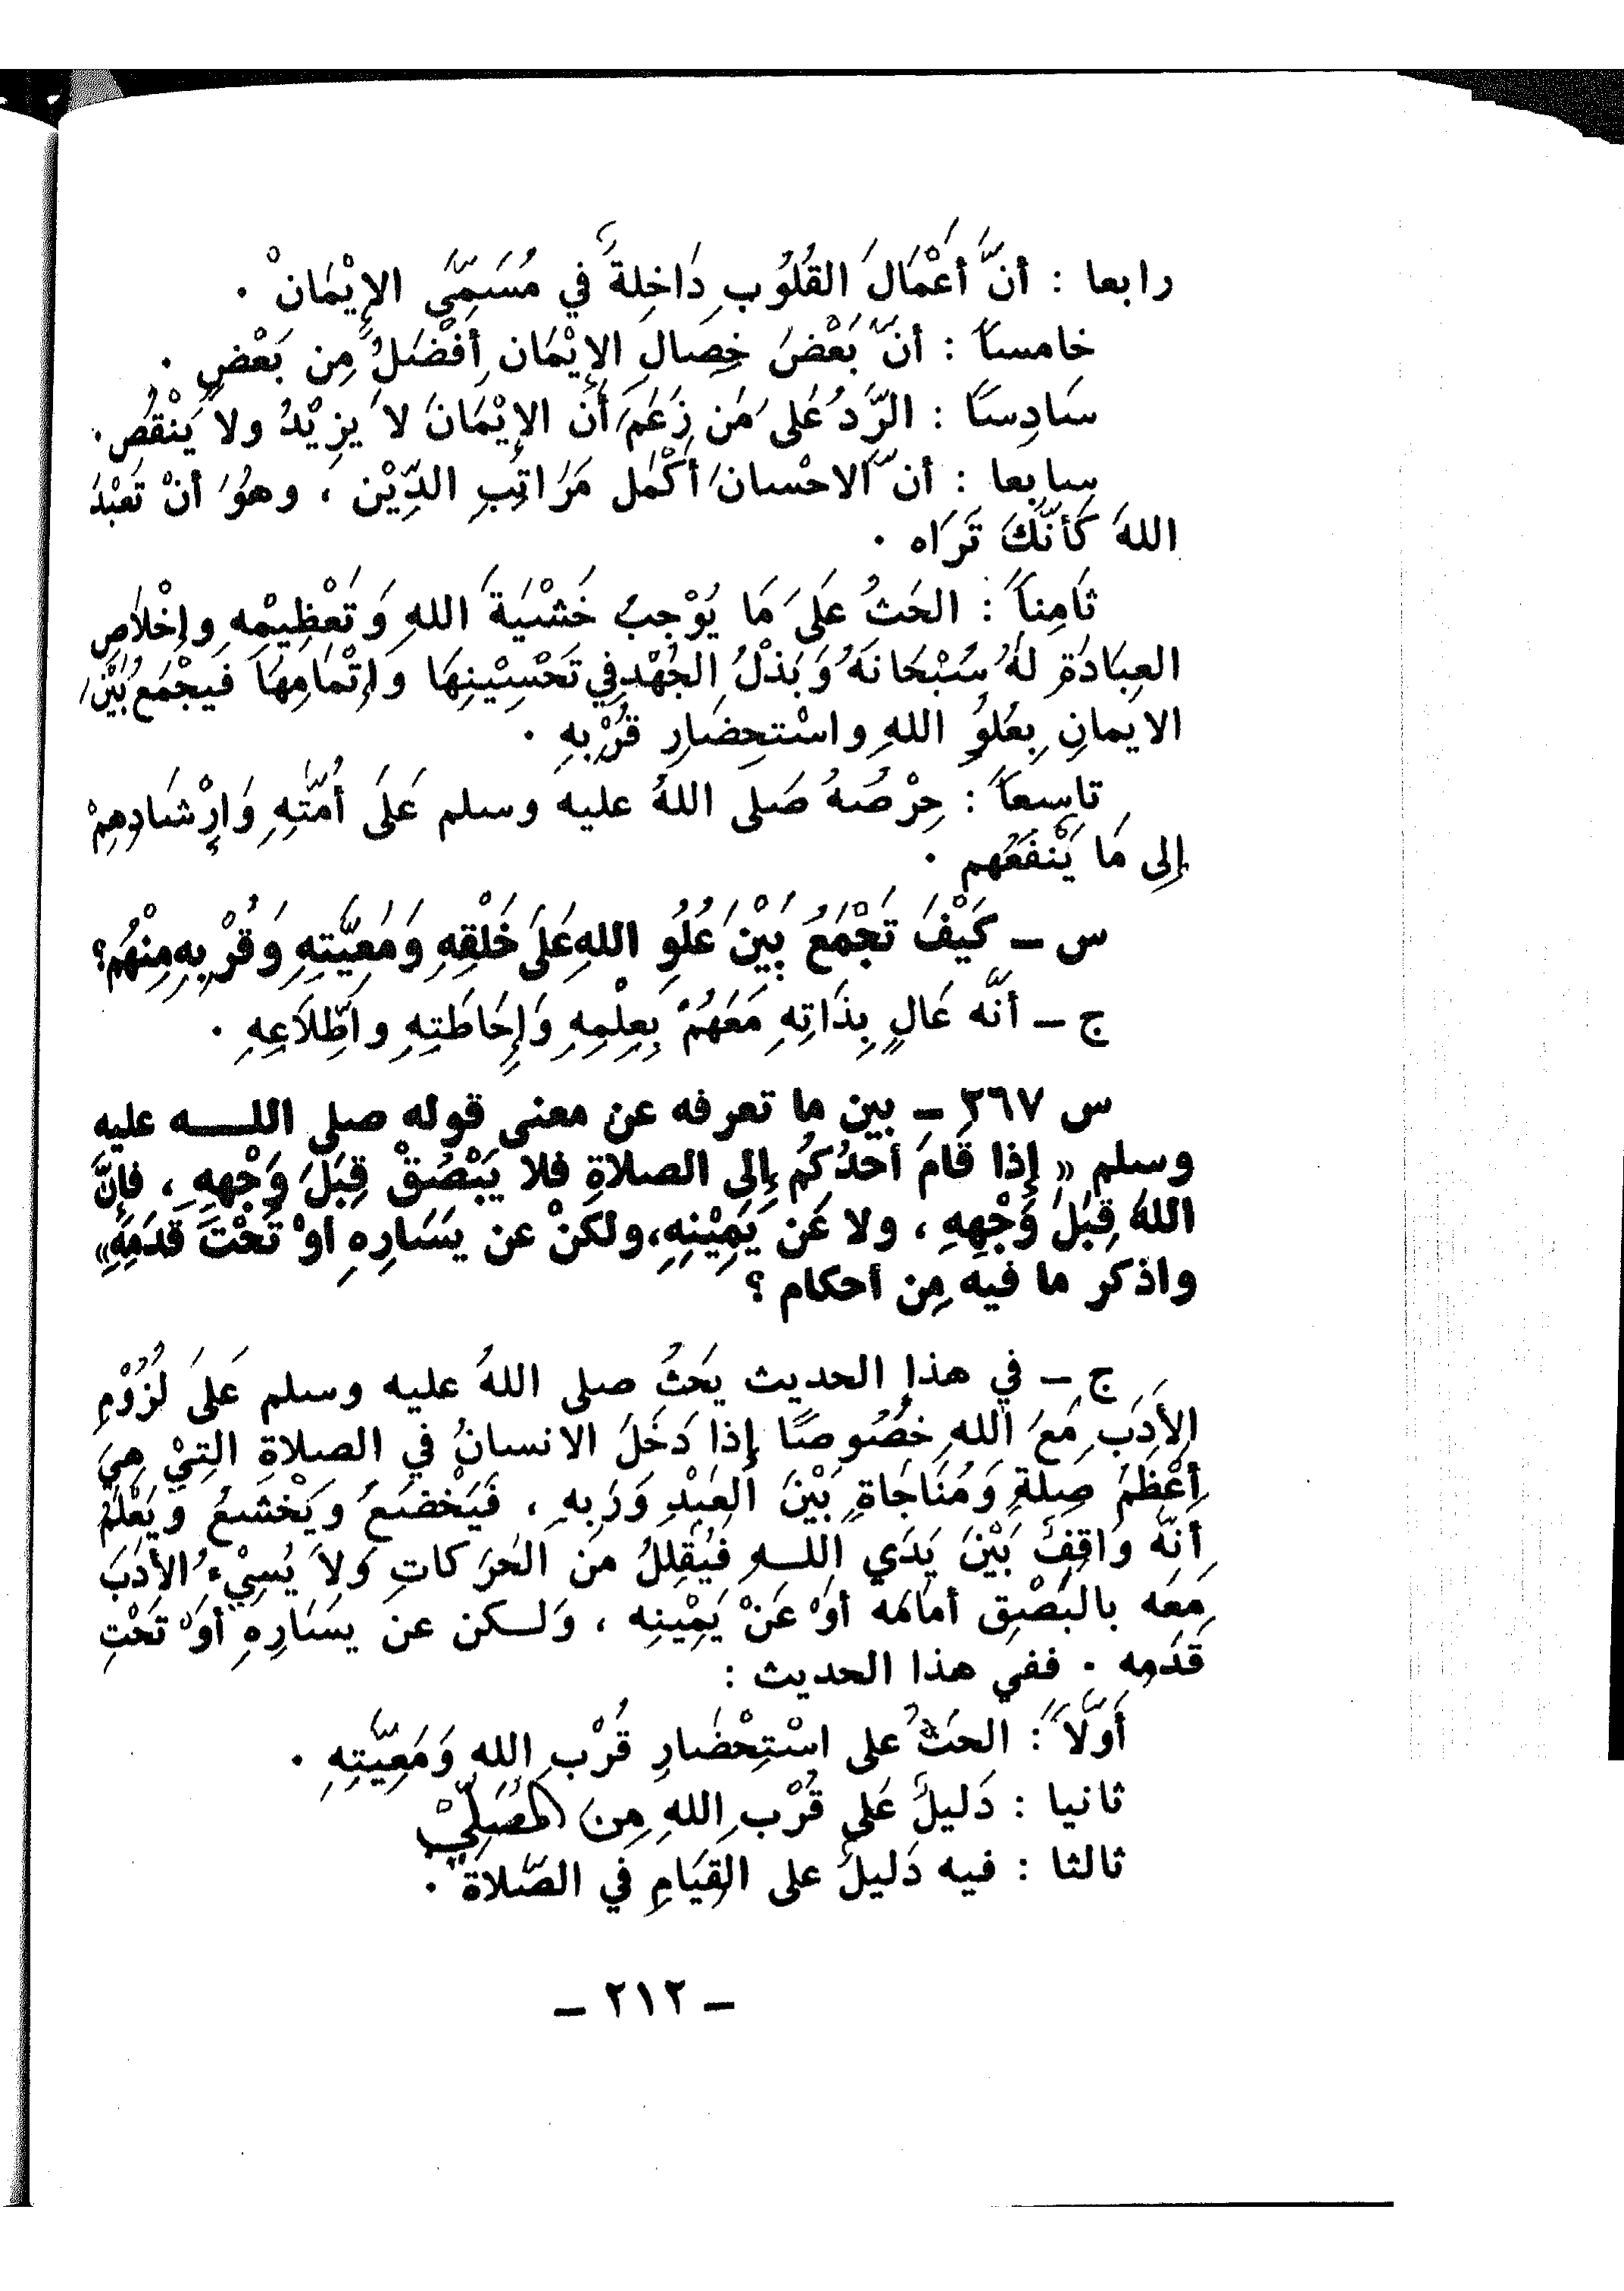 رابعا : أنَّ أَعْمَالَ القُلُوبِ دَاخِلَةٌ في مُسَمَّى الإِيْمَانْ .
خامساً : أنَّ بَعْضَ خِصَالِ الإِيْمَانِ أَفْضَلُ مِن بَعْضٍ .
سَادِسًا : الرَّدُ عَلى مَن زَعَمَ أَنَّ الإِيْمَانَ لاَ يَزِيْدُ ولاَ يَنْقُصُ .
سابعا : أنَّ الاحْسانَ أَكْمَل مَرَاتِبِ الدِّيْن ، وهُوَ أنْ تَعْبُدَ
اللهَ كَأَنَّكَ تَرَاه .
ثَامِناً : الحَثُ عَلَى مَا يُوْجِبُ خَشْيَةَ اللهِ وَتَعْظِيْمِهِ وإِخْلاَصِ
العِبَادَةِ لَهُ سُبْحَانَهُ وَبَذْلُ الجُهْدِ فِي تَحْسِيْنِهَا وَاِتْمَامِهَا فَيجْمَعُ بَيْنَ
الايمانِ بِعُلُوِ اللهِ واسْتحِضَارِ قُرْبِهِ .
تاسِعاً : حِرْصُهُ صَلى اللهُ عليه وسلم عَلَى أُمَّتِهِ وَإِرْشَادِهِمْ
إِلى مَا يَنْفَعُهم .
س ــ كَيْفَ تَجْمَعُ بَيْنَ عُلُوِ اللهِ عَلَى خَلْقِهِ وَمَعِيَّتِهِ وَقُرْبِهِ مِنْهُم؟
ج ــ أنَّه عَالٍ بِذَاتِهِ مَعَهُمْ بِعِلْمِهِ وَإِحَاطَتِهِ واطِّلاَعِهِ .
س ٢٦٧ ــ بين ما تعرفه عن معنى قوله صلى اللـــه عليه
وسلم « إِذا قَامَ أحَدُكُم إِلى الصلاةِ فلا يَبْصُقْ قِبَلَ وَجْهِهِ ، فإِنَّ
اللهَ قِبَلَ وَجْهِهِ ، ولا عَن يَمِيْنِهِ، ولكنْ عن يَسَارِهِ أوْ تَحْتَ قَدَمِهِ»
واذكر ما فيه مِن أحكام ؟
ج ــ في هذا الحديث يَحَثُ صلى اللهُ عليه وسلم عَلَى لُزُوْمِ
الأَدَبِ مَعَ اللهِ خُصُوصًا إِذا دَخَلَ الانسانُ في الصلاةِ التِيْ هِيَ
أعْظَمُ صِلَةٍ وَمُنَاجَاةٍ بَيْنَ العَبْدِ وَرَبِهِ ، فَيَخْضَعُ وَيَخْشَعُ وَيَعْلَمُ
أَنَّهُ وَاقِفٌ بَيْنَ يَدَي اللــهِ فَيُقَلِلُ مَنَ الحَرَكاتِ وَلاَ يُسِيْءُ الأَدَبَ
مَعَه بالبَصْقِ أَمَامَه أوْ عَنْ يَمْيِنِه ، وَلــكن عن يَسَارِهِ أوْ تَحْتِ
قَدَمِه . ففي هذا الحديث :
أَوَّلاً : الحَثُ على اسْتِحْضَارِ قُرْبِ اللهِ وَمَعِيَّتِهِ .
ثانيا : دَليلٌ عَلى قُرْبِ اللهِ مِنَ المُصَلِّيْ
ثالثا : فيه دَليلٌ على القِيَامِ في الصَّلاة .
ــ ٢١٢ ــ